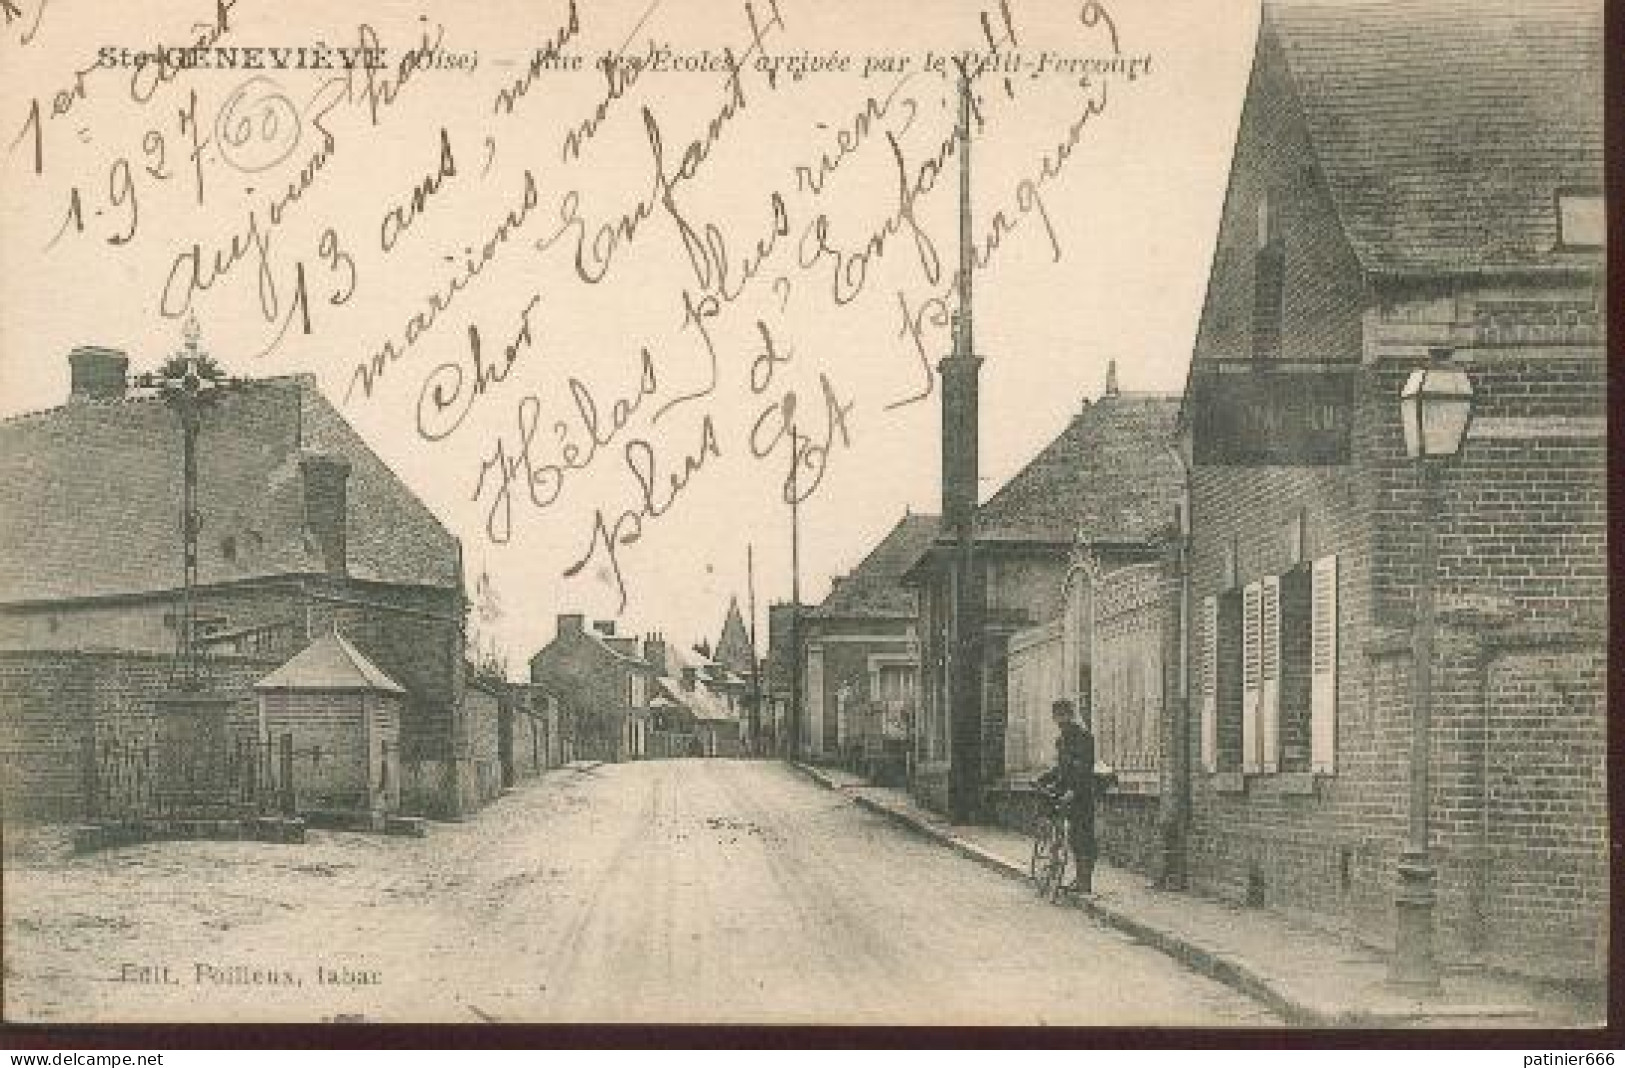 Ste-GENEVIÈVE (Oise) — Rue des Écoles, arrivée par le Petit-Fercourt
1er août
1927.
60
aujourd'hui
13 ans, nous
mariions notre
Cher Enfant!!
Hélas plus rien,
plus d'Enfant!!
Et pourquoi?
Edit. Poilleux, tabac
delcampe.net
patinier666